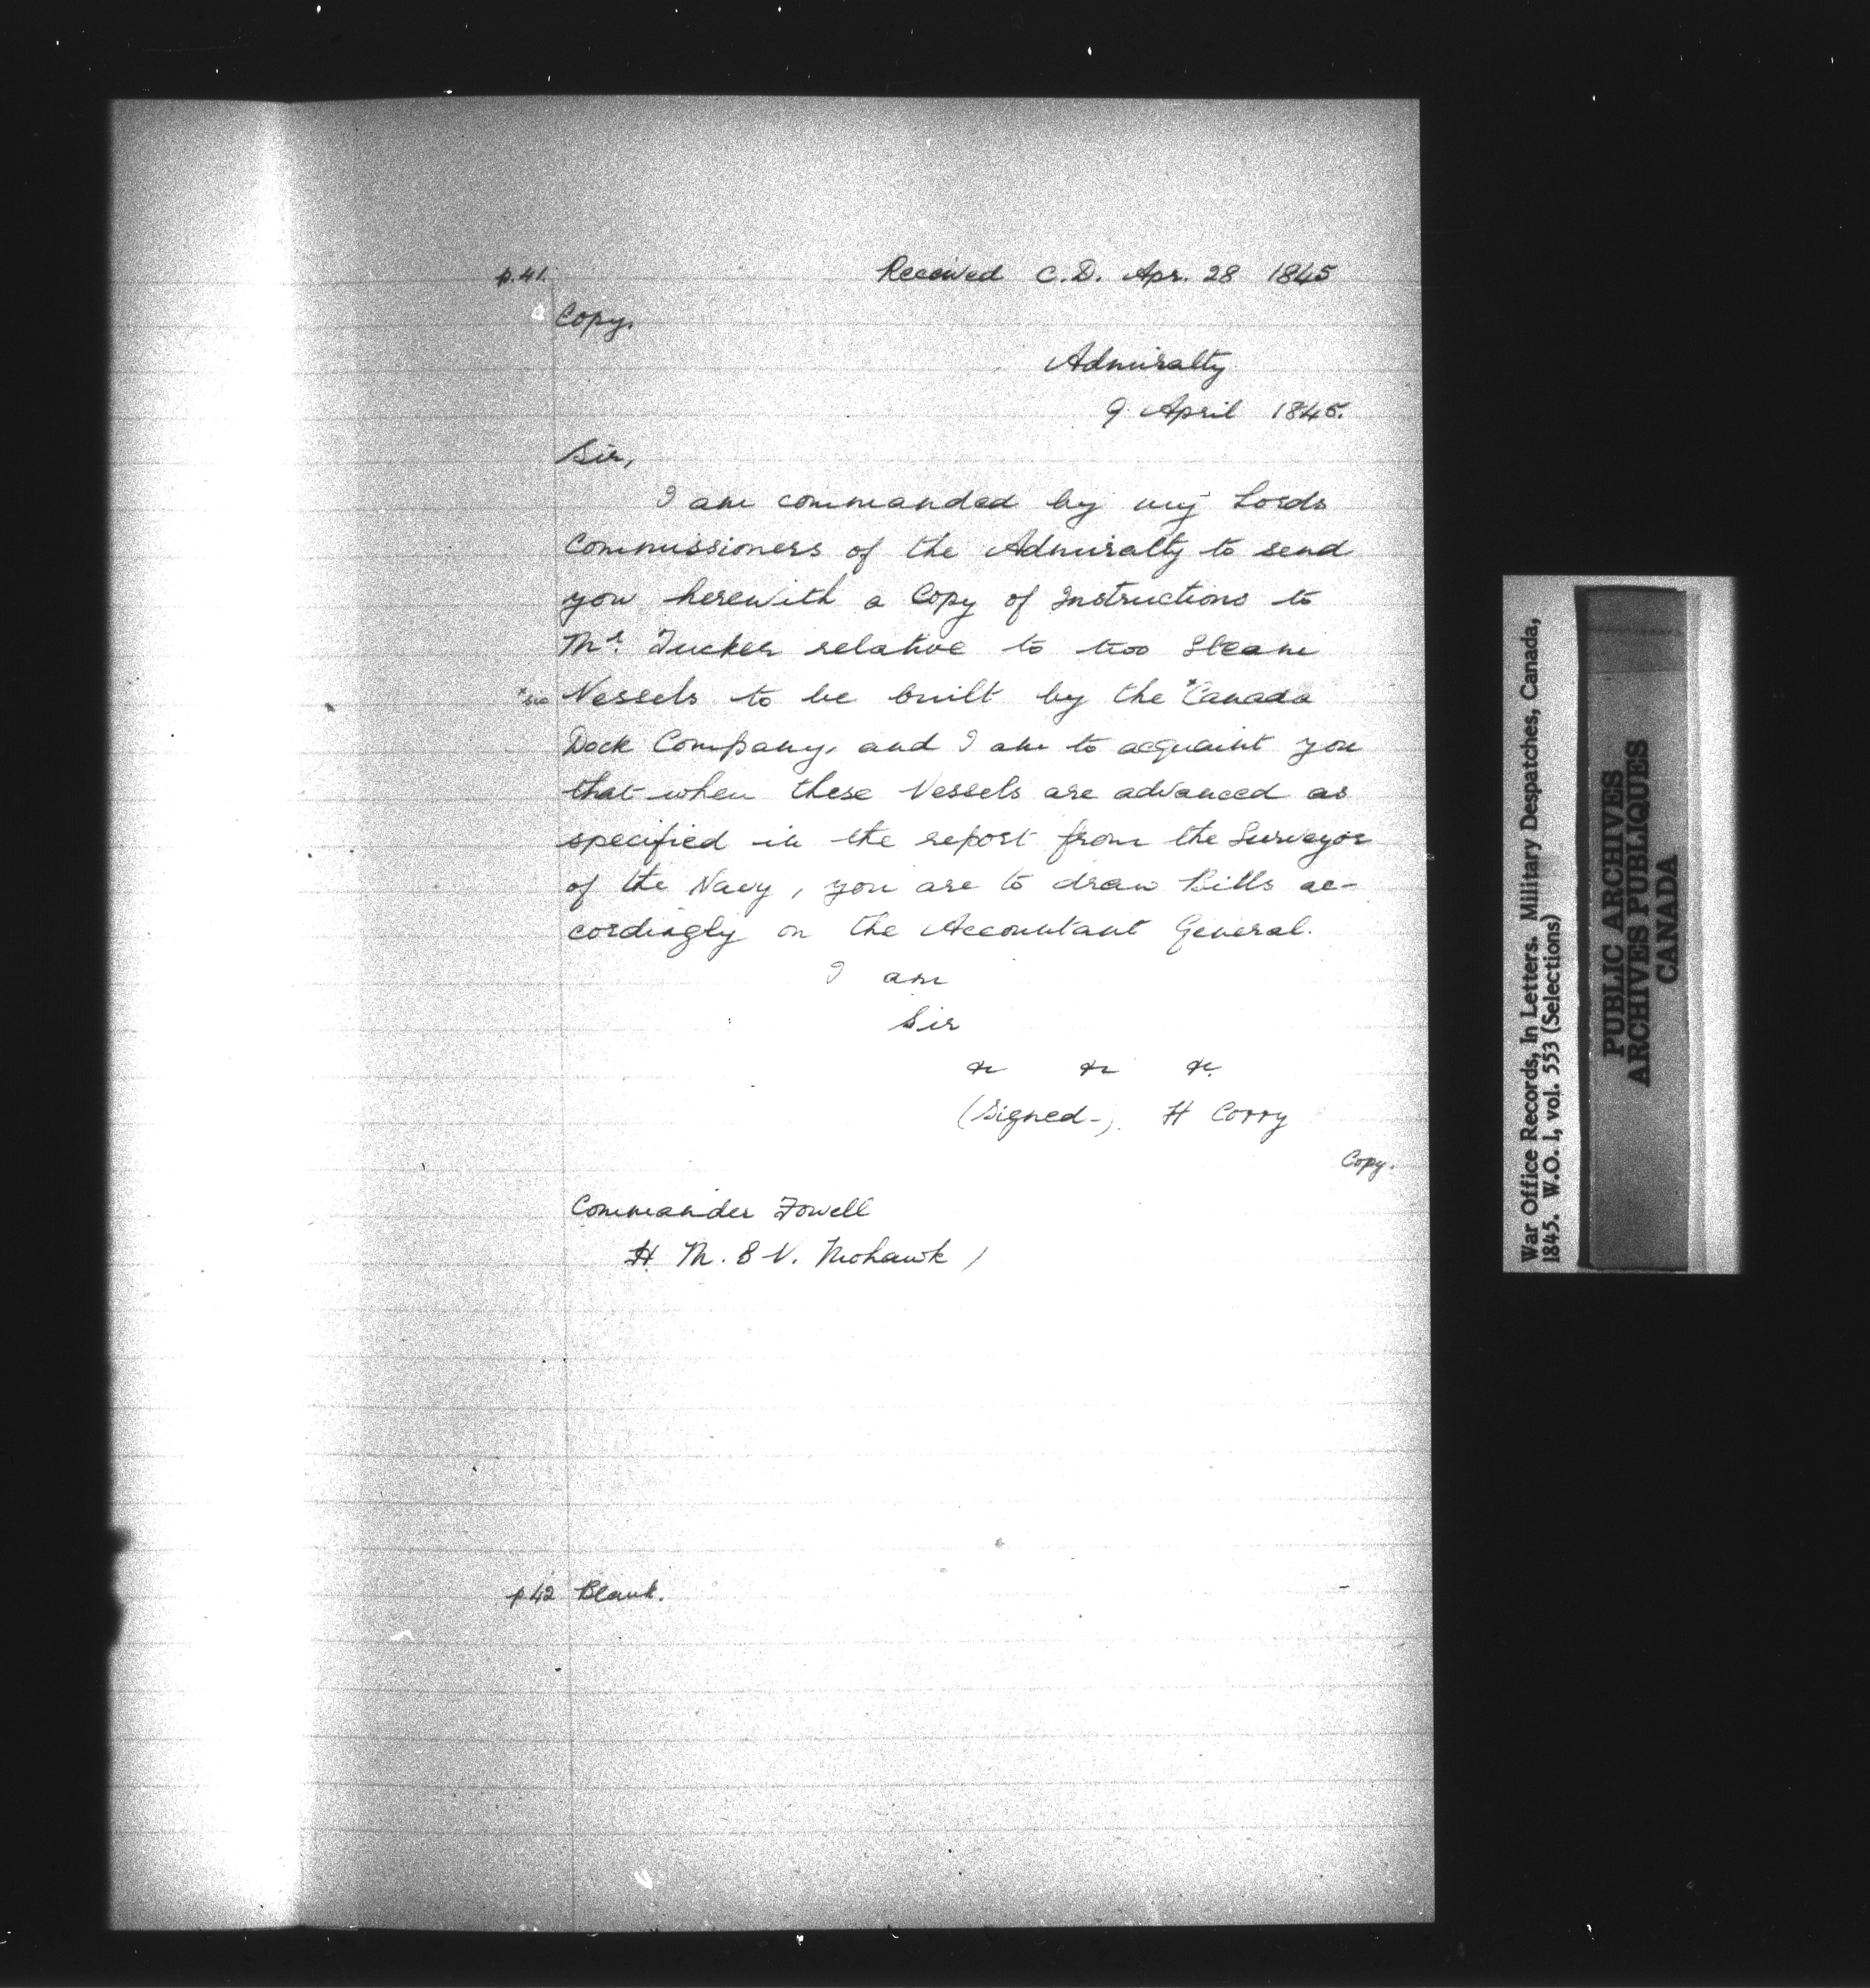 p.41. Received C.D. Apr. 28 1845
Copy.
Admiralty
9 April 1845.
Sir,
I am commanded by my Lords
Commissioners of the Admiralty to send
you herewith a Copy of Instructions to
Mr. Tucker relative to two Steam
*sic Vessels to be built by the *Canada
Dock Company, and I am to acquaint you
that when these Vessels are advanced as
specified in the report from the Surveyor
of the Navy, you are to draw Bills ac-
cordingly on the Accountant General.
I am
Sir
&c &c &c.
(Signed-) H Corry
Copy.
Commander Fowell
H. M. S V. Mohawk )
p 42 Blank.
War Office Records, In Letters. Military Despatches, Canada,
1845. W.O. 1, vol. 553 (Selections)
PUBLIC ARCHIVES
ARCHIVES PUBLIQUES
CANADA